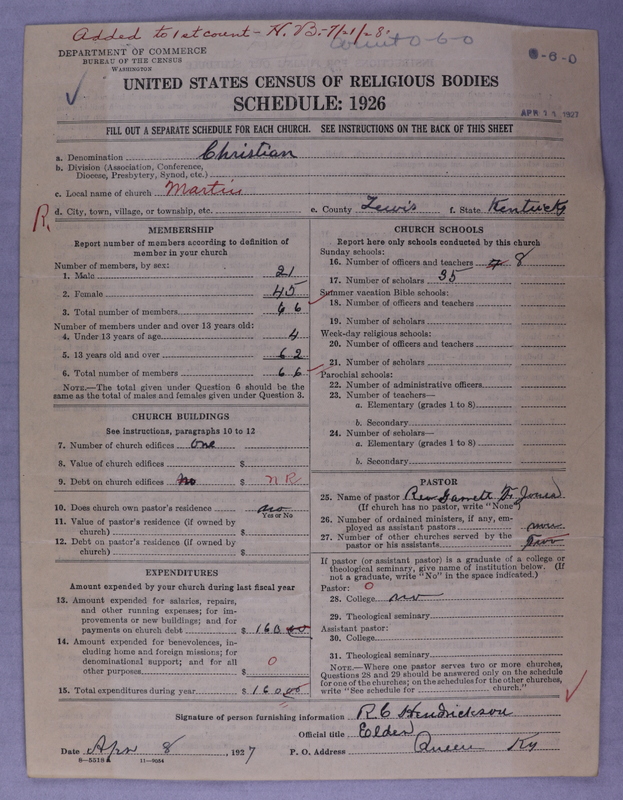 Added to 1st count - H. B. - 7/21/28
Count 0-6-0
DEPARTMENT OF COMMERCE
BUREAU OF THE CENSUS
WASHINGTON
8-6-0
UNITED STATES CENSUS OF RELIGIOUS BODIES
SCHEDULE: 1926
APR 11 1927
FILL OUT A SEPARATE SCHEDULE FOR EACH CHURCH. SEE INSTRUCTIONS ON THE BACK OF THIS SHEET
a. Denomination Christian
b. Division (Association, Conference, Diocese, Presbytery, Synod, etc.)
c. Local name of church Martin
R. d. City, town, village, or township, etc. e. County Lewis f. State Kentucky
MEMBERSHIP
Report number of members according to definition of
member in your church
Number of members, by sex:
1. Male 21
2. Female 45
3. Total number of members 66
Number of members under and over 13 years old:
4. Under 13 years of age 4
5. 13 years old and over 62
6. Total number of members 66
NOTE.—The total given under Question 6 should be the
same as the total of males and females given under Question 3.
CHURCH BUILDINGS
See instructions, paragraphs 10 to 12
7. Number of church edifices one
8. Value of church edifices $
9. Debt on church edifices no $ NR
10. Does church own pastor's residence no
Yes or No
11. Value of pastor's residence (if owned by
church) $
12. Debt on pastor's residence (if owned by
church) $
EXPENDITURES
Amount expended by your church during last fiscal year
13. Amount expended for salaries, repairs,
and other running expenses; for im-
provements or new buildings; and for
payments on church debt $ 160.00
14. Amount expended for benevolences, in-
cluding home and foreign missions; for
denominational support; and for all
other purposes $ 0
15. Total expenditures during year $ 160.00
CHURCH SCHOOLS
Report here only schools conducted by this church
Sunday schools:
16. Number of officers and teachers 8
17. Number of scholars 35
Summer vacation Bible schools:
18. Number of officers and teachers
19. Number of scholars
Week-day religious schools:
20. Number of officers and teachers
21. Number of scholars
Parochial schools:
22. Number of administrative officers
23. Number of teachers—
a. Elementary (grades 1 to 8)
b. Secondary
24. Number of scholars—
a. Elementary (grades 1 to 8)
b. Secondary
PASTOR
25. Name of pastor Rev Garrett F. Jones
(If church has no pastor, write "None")
26. Number of ordained ministers, if any, em-
ployed as assistant pastors none
27. Number of other churches served by the
pastor or his assistants Two
If pastor (or assistant pastor) is a graduate of a college or
theological seminary, give name of institution below. (If
not a graduate, write "No" in the space indicated.)
Pastor: 0
28. College no
29. Theological seminary
Assistant pastor:
30. College
31. Theological seminary
NOTE.—Where one pastor serves two or more churches,
Questions 28 and 29 should be answered only on the schedule
for one of the churches; on the schedules for the other churches,
write "See schedule for church."
Signature of person furnishing information R C Hendrickson
Official title Elder
Date Apr 8, 1927 P. O. Address Queen Ky
8-5518a 11-9054